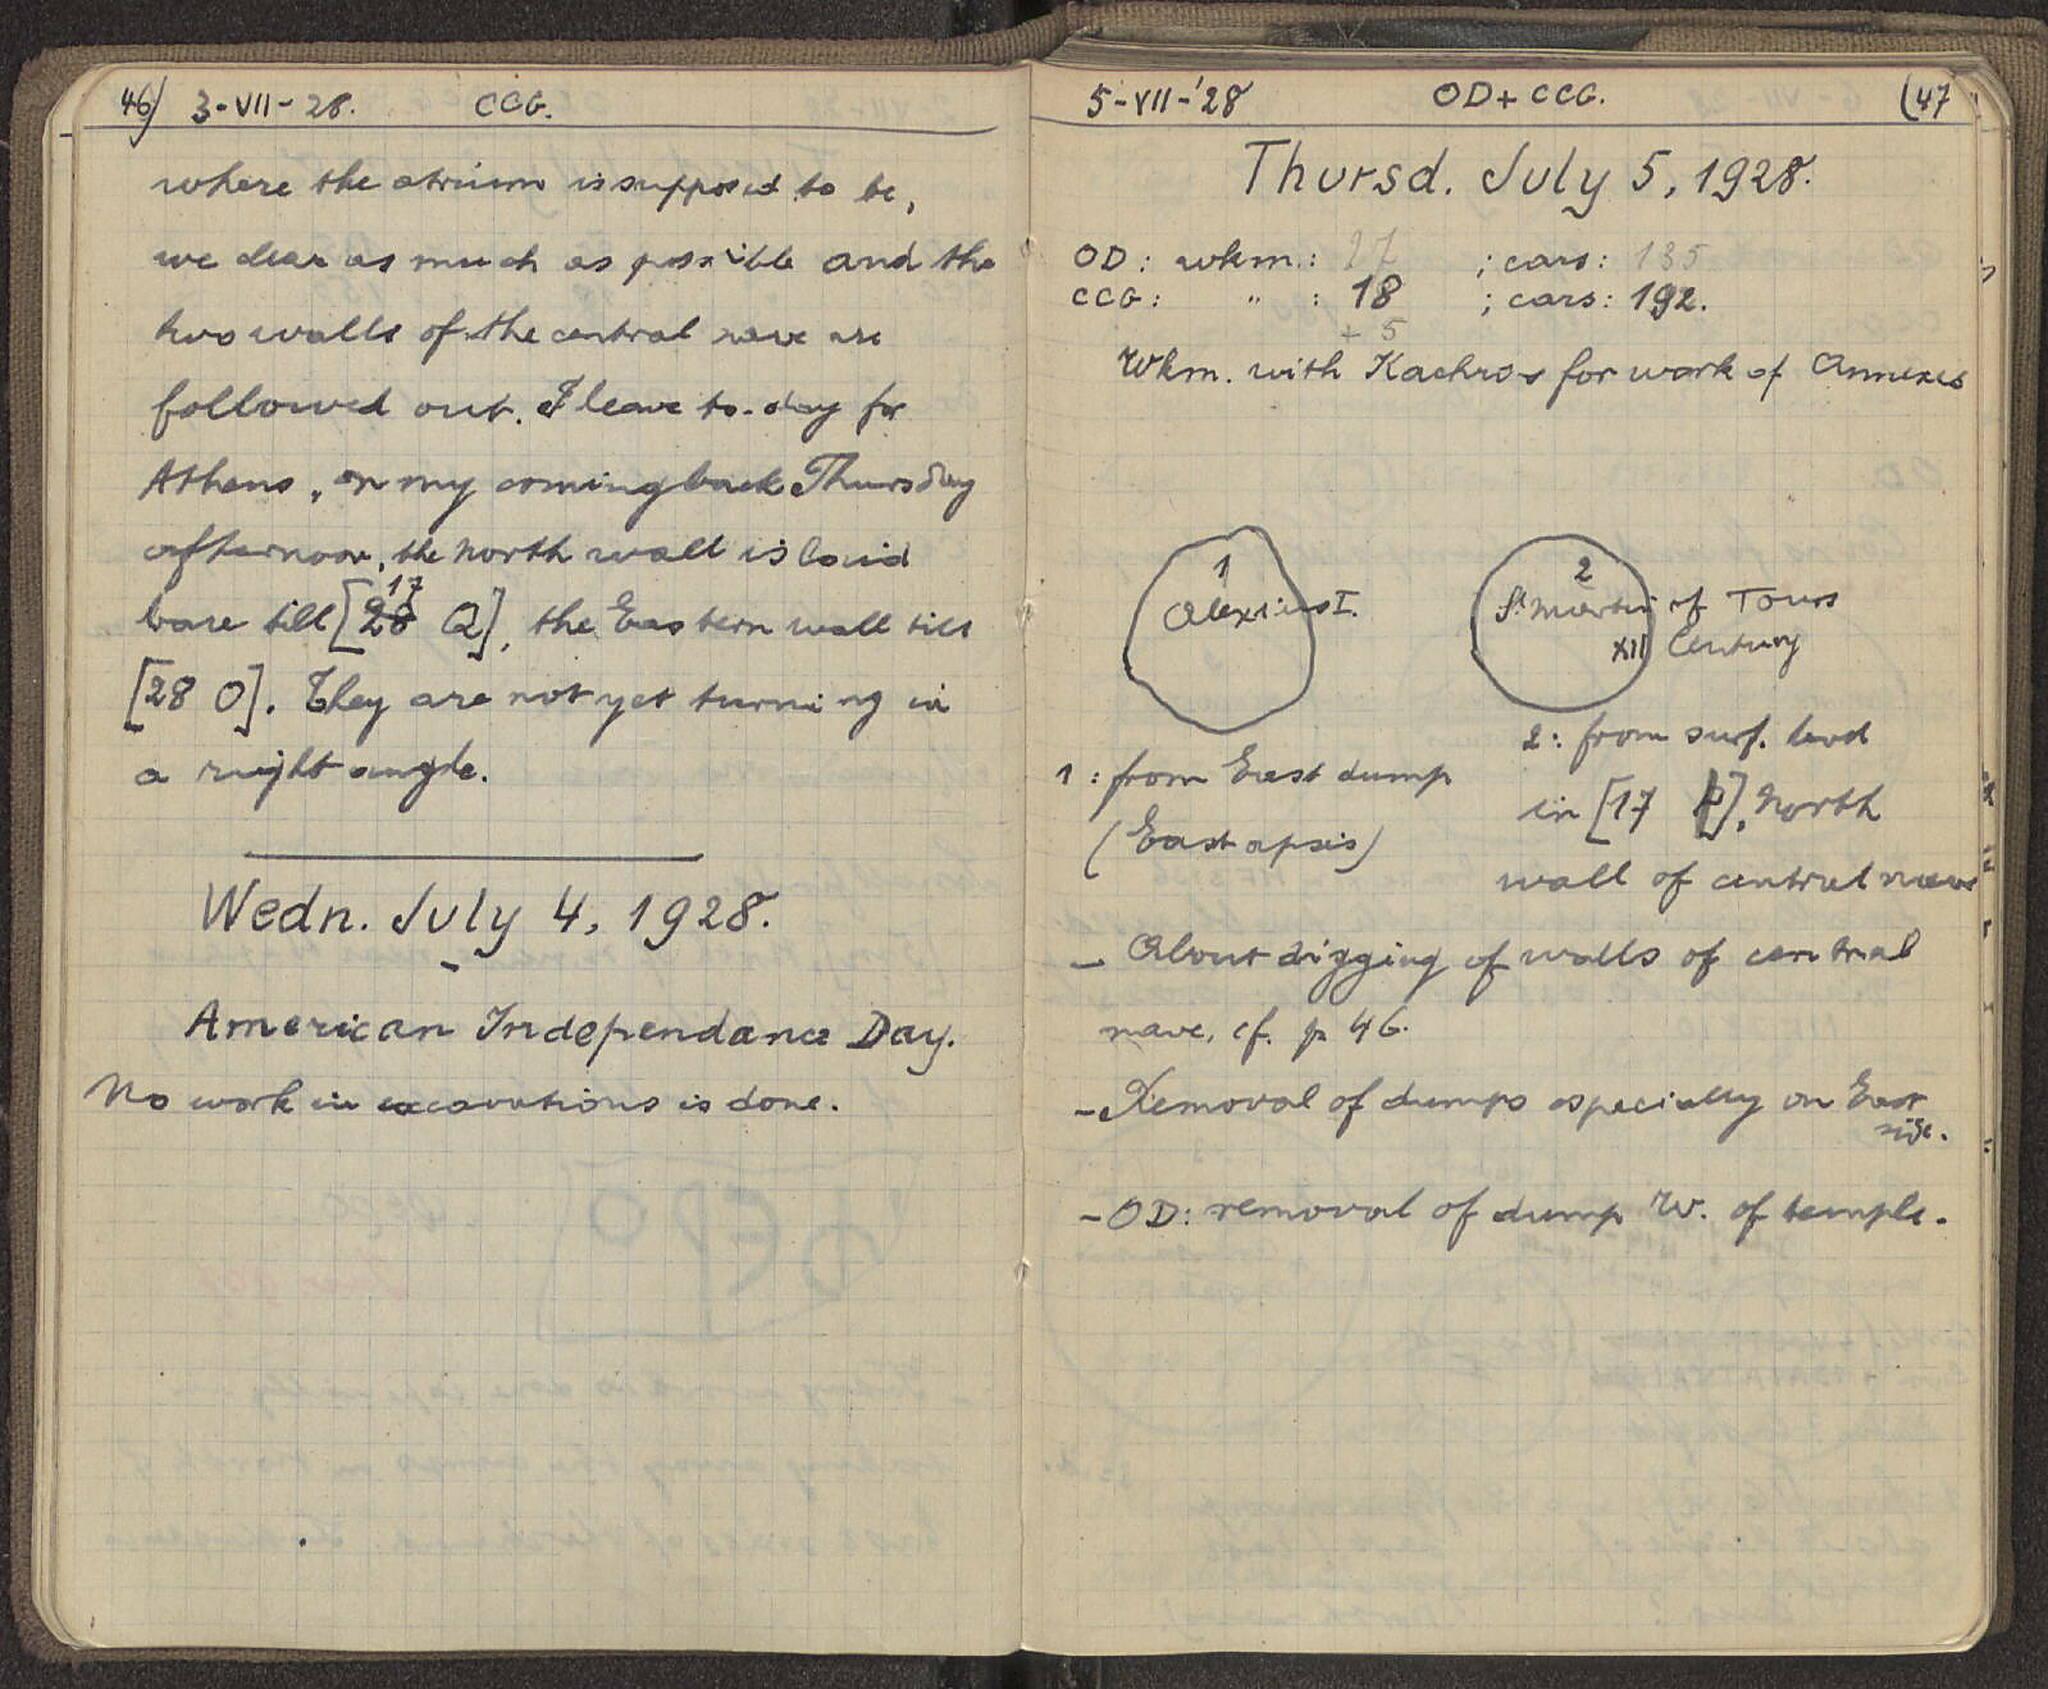 46) 3-VII-28. CCG.
where the atrium is supposed to be,
we clear as much as possible and the
two walls of the central nave are
followed out. I leave to-day for
Athens, on my coming back Thursday
afternoon, the North wall is laid
17
bare till [28 Q], the Eastern wall till
[28 O]. They are not yet turning in
a right angle.
Wedn. July 4, 1928.
American Independance Day.
No work in excavations is done.
5-VII-'28 OD+CCG. (47
Thursd. July 5, 1928.
OD: wkm.: 27 ; cars: 135
CCG: " : 18 ; cars: 192.
+ 5
Wkm. with Kachros for work of Annexes
1
Alexius I.
2
St Martin of Tours
XII Century
1: from East dump
(East apsis)
2: from surf. level
in [17 P], North
wall of central nave
- About digging of walls of central
nave, cf. p 46.
- Removal of dumps especially on East
side.
- OD: removal of dump W. of temple.